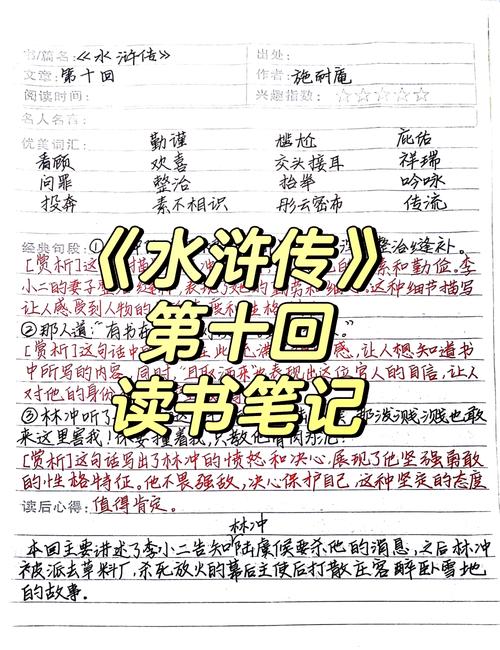 书/篇名:《水浒传》 出处:
文章:第十回 作者:施耐庵
阅读时间: 兴趣指数:☆☆☆☆☆
名人名言:
优美词汇: 勤谨 尴尬 庇佑
看顾 欢喜 交头接耳 祥瑞
问罪 整治 抬举 吟咏
投奔 素不相识 彤云密布 传流
《水浒传》
第十回
读书笔记
经典句段:① 整治缝补。
[赏析]这 和勤俭。李
小二的妻子 这种细节描写
让人感受到人物的
②那人道:“有书在
[赏析]这句话中 感,让人想知道书
中所写的内容,同时“且取酒来”表现出这位官人的自信,让人
对他的身份
③林冲听了 那泼贱贼也敢
来这里害我!休要撞着我,只教他骨肉为泥!”
[赏析]这句话写出了林冲的愤怒和决心,展现了他坚强勇敢
的性格特征。他不畏强敌,决心保护自己,这种坚定的态度
读后心得:值得肯定。
林冲
本回主要讲述了李小二告知陆虞候要杀他的消息,之后林冲
被派去草料厂,杀死放火的幕后主使后打散庄客醉卧雪地
的故事。